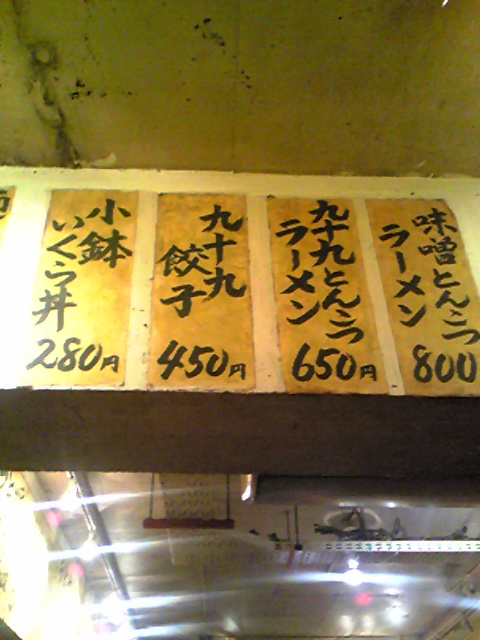 味噌とんこつ
ラーメン
800
九十九とんこつ
ラーメン
650円
九十九
餃子
450円
小鉢
いくら丼
280円